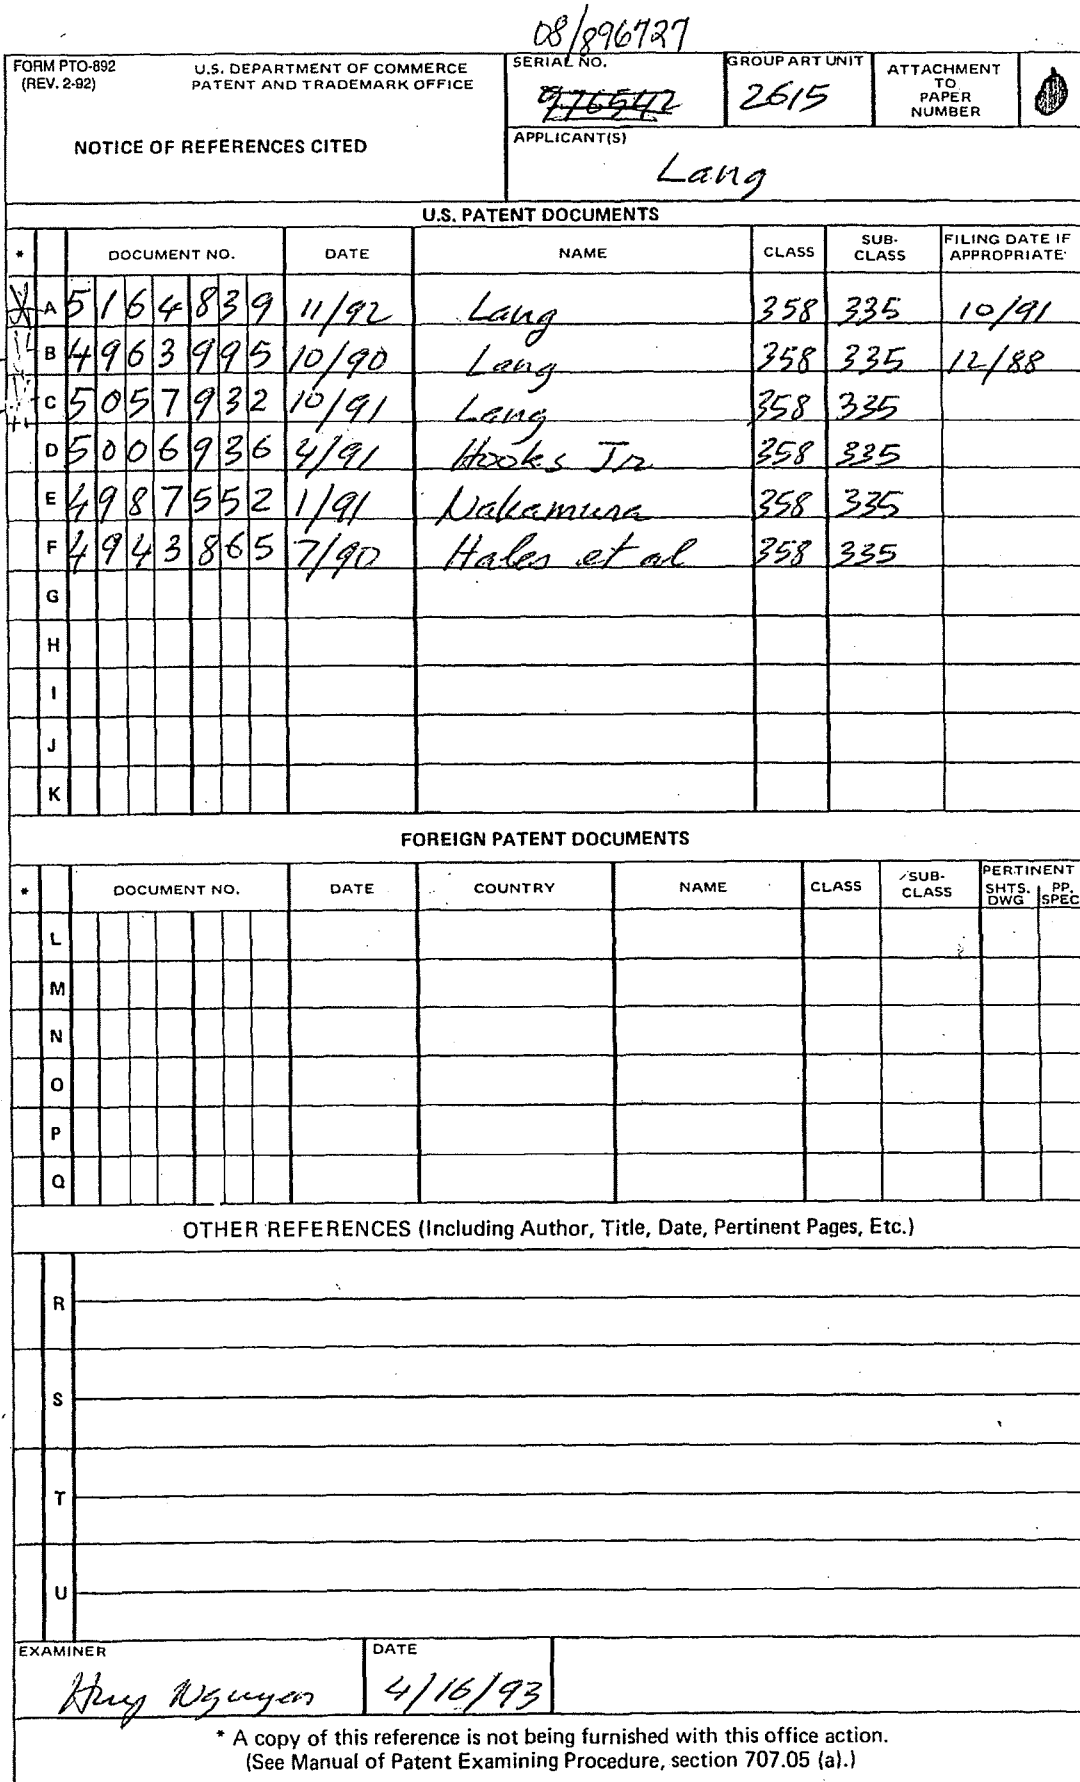 08/896727
FORM PTO-892
(REV. 2-92)
U.S. DEPARTMENT OF COMMERCE
PATENT AND TRADEMARK OFFICE
NOTICE OF REFERENCES CITED
SERIAL NO.
976542
GROUP ART UNIT
2615
ATTACHMENT
TO
PAPER
NUMBER
APPLICANT(S)
Lang
U.S. PATENT DOCUMENTS
* DOCUMENT NO. DATE NAME CLASS SUB-CLASS FILING DATE IF APPROPRIATE
A 5164839 11/92 Lang 358 335 10/91
B 4963995 10/90 Lang 358 335 12/88
C 5057932 10/91 Lang 358 335
D 5006936 4/91 Hooks Jr 358 335
E 4987552 1/91 Nakamura 358 335
F 4943865 7/90 Hales et al 358 335
G
H
I
J
K
FOREIGN PATENT DOCUMENTS
* DOCUMENT NO. DATE COUNTRY NAME CLASS SUB-CLASS PERTINENT SHTS. DWG PP. SPEC
L
M
N
O
P
Q
OTHER REFERENCES (Including Author, Title, Date, Pertinent Pages, Etc.)
R
S
T
U
EXAMINER
Huy Nguyen
DATE
4/16/93
* A copy of this reference is not being furnished with this office action.
(See Manual of Patent Examining Procedure, section 707.05 (a).)